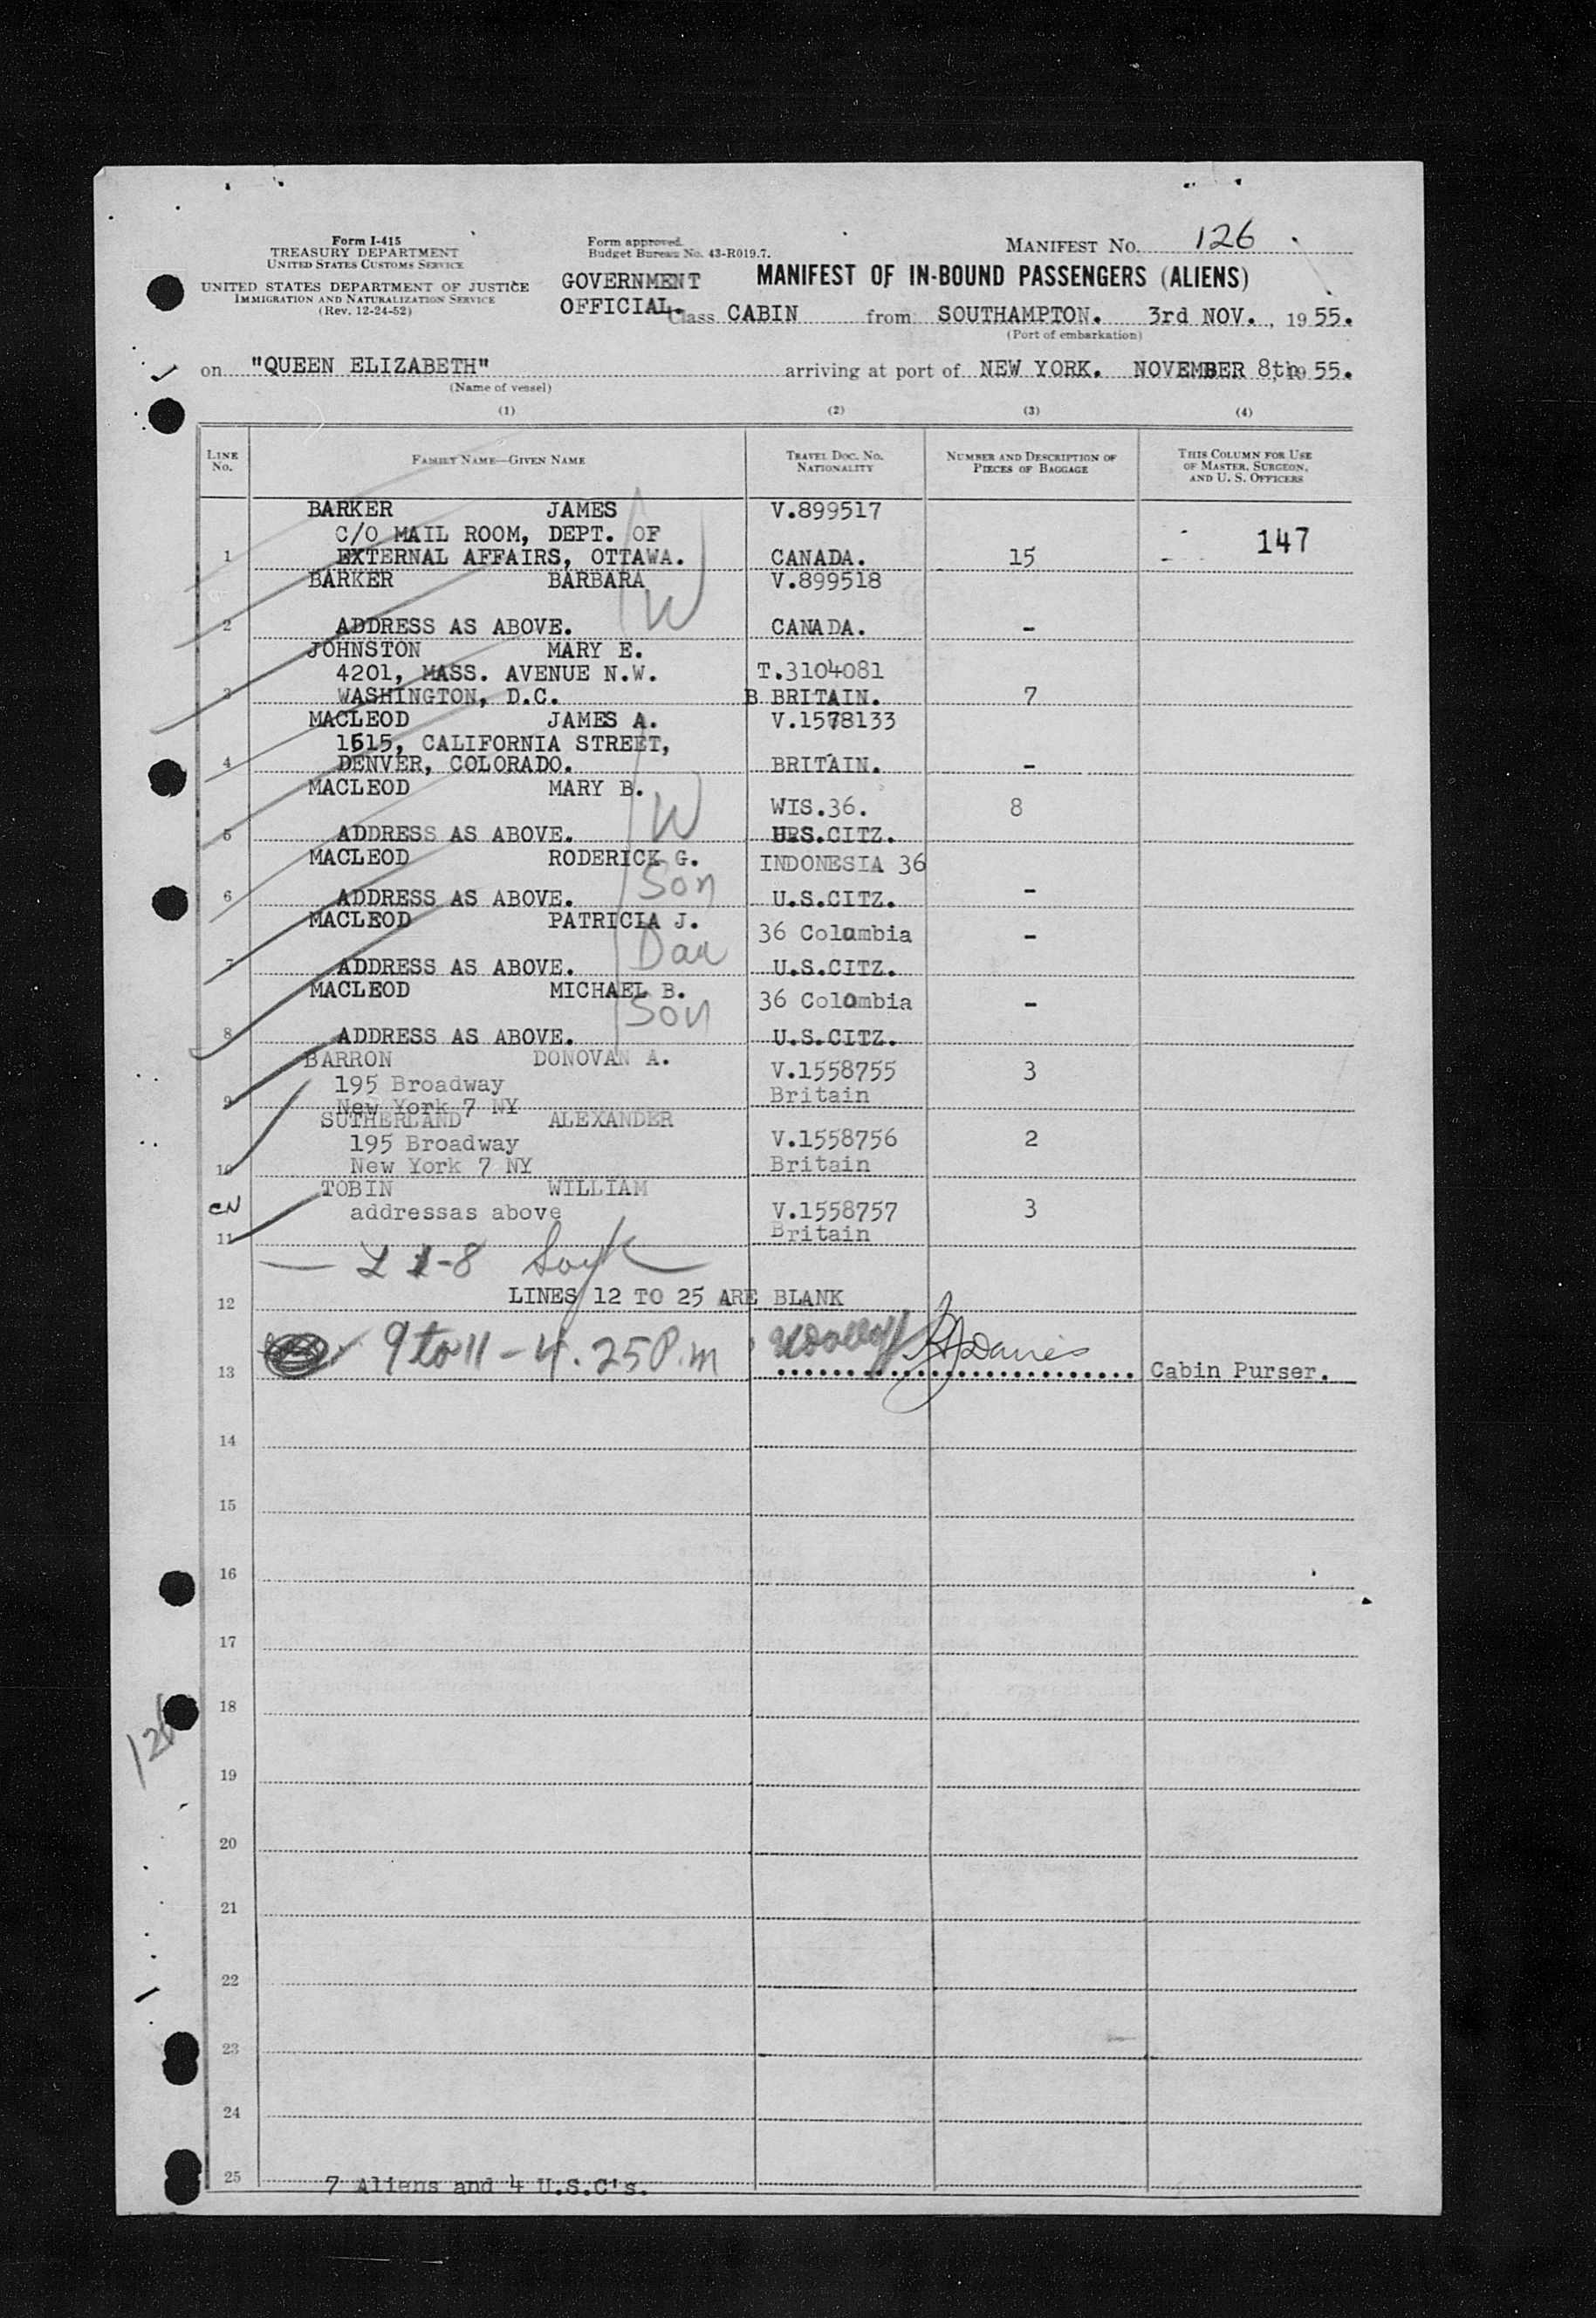 Form I-415
TREASURY DEPARTMENT
UNITED STATES CUSTOMS SERVICE
UNITED STATES DEPARTMENT OF JUSTICE
IMMIGRATION AND NATURALIZATION SERVICE
(Rev. 12-24-52)
Form approved.
Budget Bureau No. 43-R019.7.
MANIFEST NO. 126
GOVERNMENT OFFICIAL.
MANIFEST OF IN-BOUND PASSENGERS (ALIENS)
Class CABIN from SOUTHAMPTON. 3rd NOV., 1955.
(Port of embarkation)
on "QUEEN ELIZABETH" arriving at port of NEW YORK. NOVEMBER 8th, 1955.
(Name of vessel)
(1) (2) (3) (4)
LINE NO. FAMILY NAME—GIVEN NAME TRAVEL DOC. NO. NATIONALITY NUMBER AND DESCRIPTION OF PIECES OF BAGGAGE THIS COLUMN FOR USE OF MASTER, SURGEON, AND U. S. OFFICERS
BARKER JAMES V.899517
C/O MAIL ROOM, DEPT. OF 147
1 EXTERNAL AFFAIRS, OTTAWA. CANADA. 15
BARKER BARBARA V.899518
W
2 ADDRESS AS ABOVE. CANADA. -
JOHNSTON MARY E.
4201, MASS. AVENUE N.W. T.3104081
3 WASHINGTON, D.C. B BRITAIN. 7
MACLEOD JAMES A. V.1578133
1615, CALIFORNIA STREET,
4 DENVER, COLORADO. BRITAIN. -
MACLEOD MARY B.
W WIS.36. 8
5 ADDRESS AS ABOVE. U.S.CITZ.
MACLEOD RODERICK G. INDONESIA 36
Son
6 ADDRESS AS ABOVE. U.S.CITZ. -
MACLEOD PATRICIA J. 36 Colombia -
Dau
7 ADDRESS AS ABOVE. U.S.CITZ.
MACLEOD MICHAEL B. 36 Colombia -
Son
8 ADDRESS AS ABOVE. U.S.CITZ.
BARRON DONOVAN A. V.1558755 3
195 Broadway Britain
9 New York 7 NY
SUTHERLAND ALEXANDER
195 Broadway V.1558756 2
10 New York 7 NY Britain
TOBIN WILLIAM
addressas above V.1558757 3
11 Britain
— L 1-8
12 LINES 12 TO 25 ARE BLANK
9 to 11 - 4.25 P.m
Davies
13 Cabin Purser.
14
15
16
17
18
126
19
20
21
22
23
24
25 7 Aliens and 4 U.S.C's.